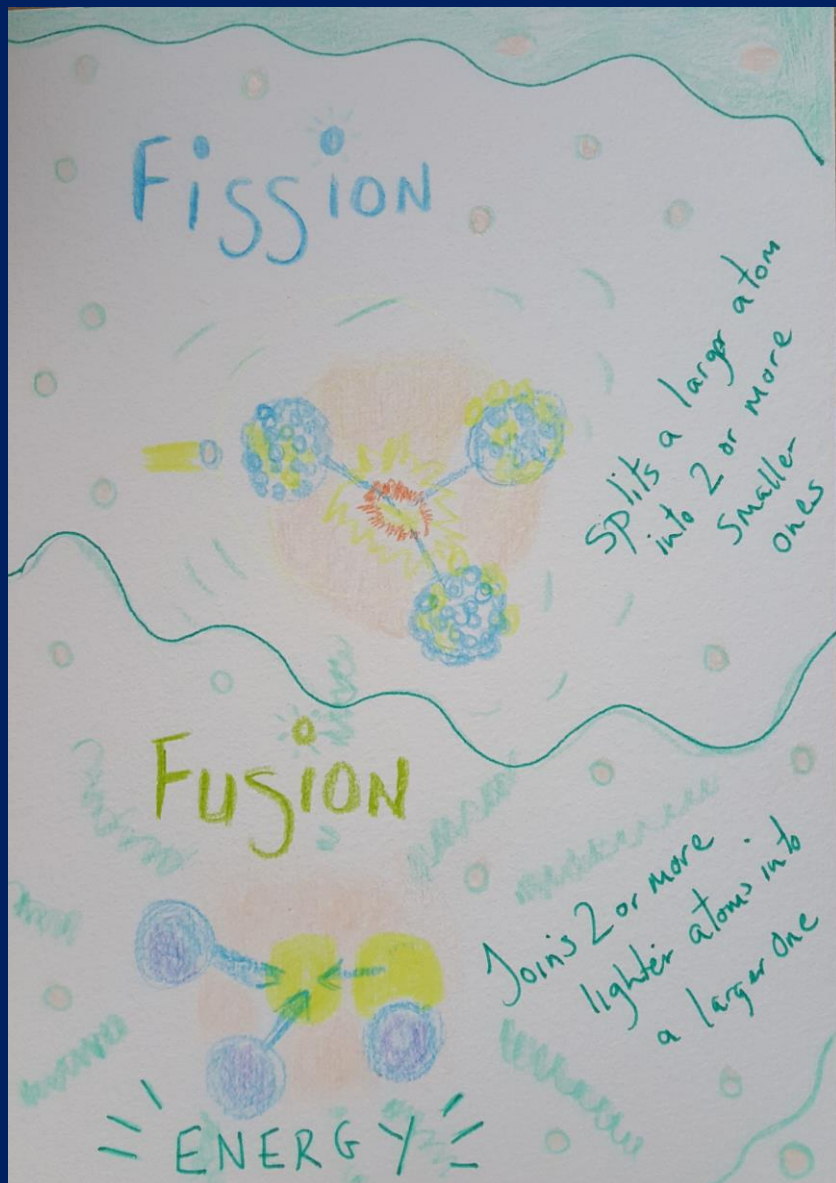 Fission
Splits a larger atom
into 2 or more
smaller
ones
Fusion
Joins 2 or more
lighter atoms into
a larger one
ENERGY